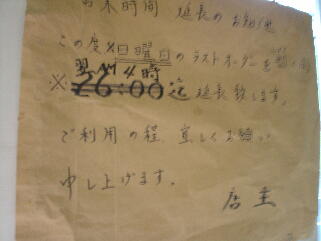 時間 延長の お知
この度〆日曜日のラストオーダーを
翌朝4時
※26:00迄 延長致します。
ご利用の程 宜しくお願い
申し上げます。
店主